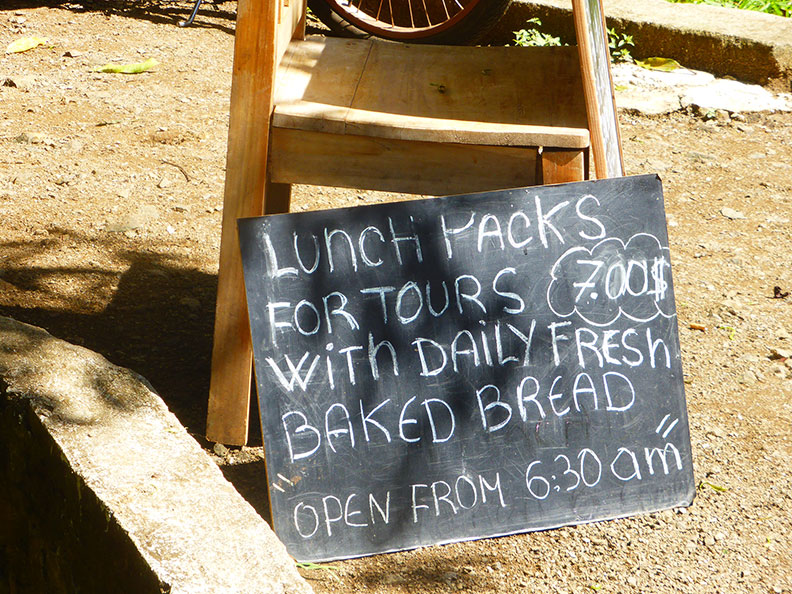 LUNCH PACKS
FOR TOURS 7.00$
WITH DAILY FRESH
BAKED BREAD
OPEN FROM 6:30 am